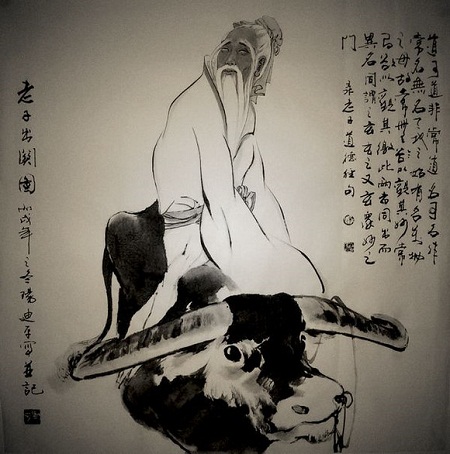 道可道非常道名可名非
常名無名天地之始有名萬物
之母故常無欲以觀其妙常
有欲以觀其徼此兩者同出而
異名同謂之玄玄之又玄眾妙之
門
录老子道德經句
老子出關圖 戌年之冬陽迪平寫並記